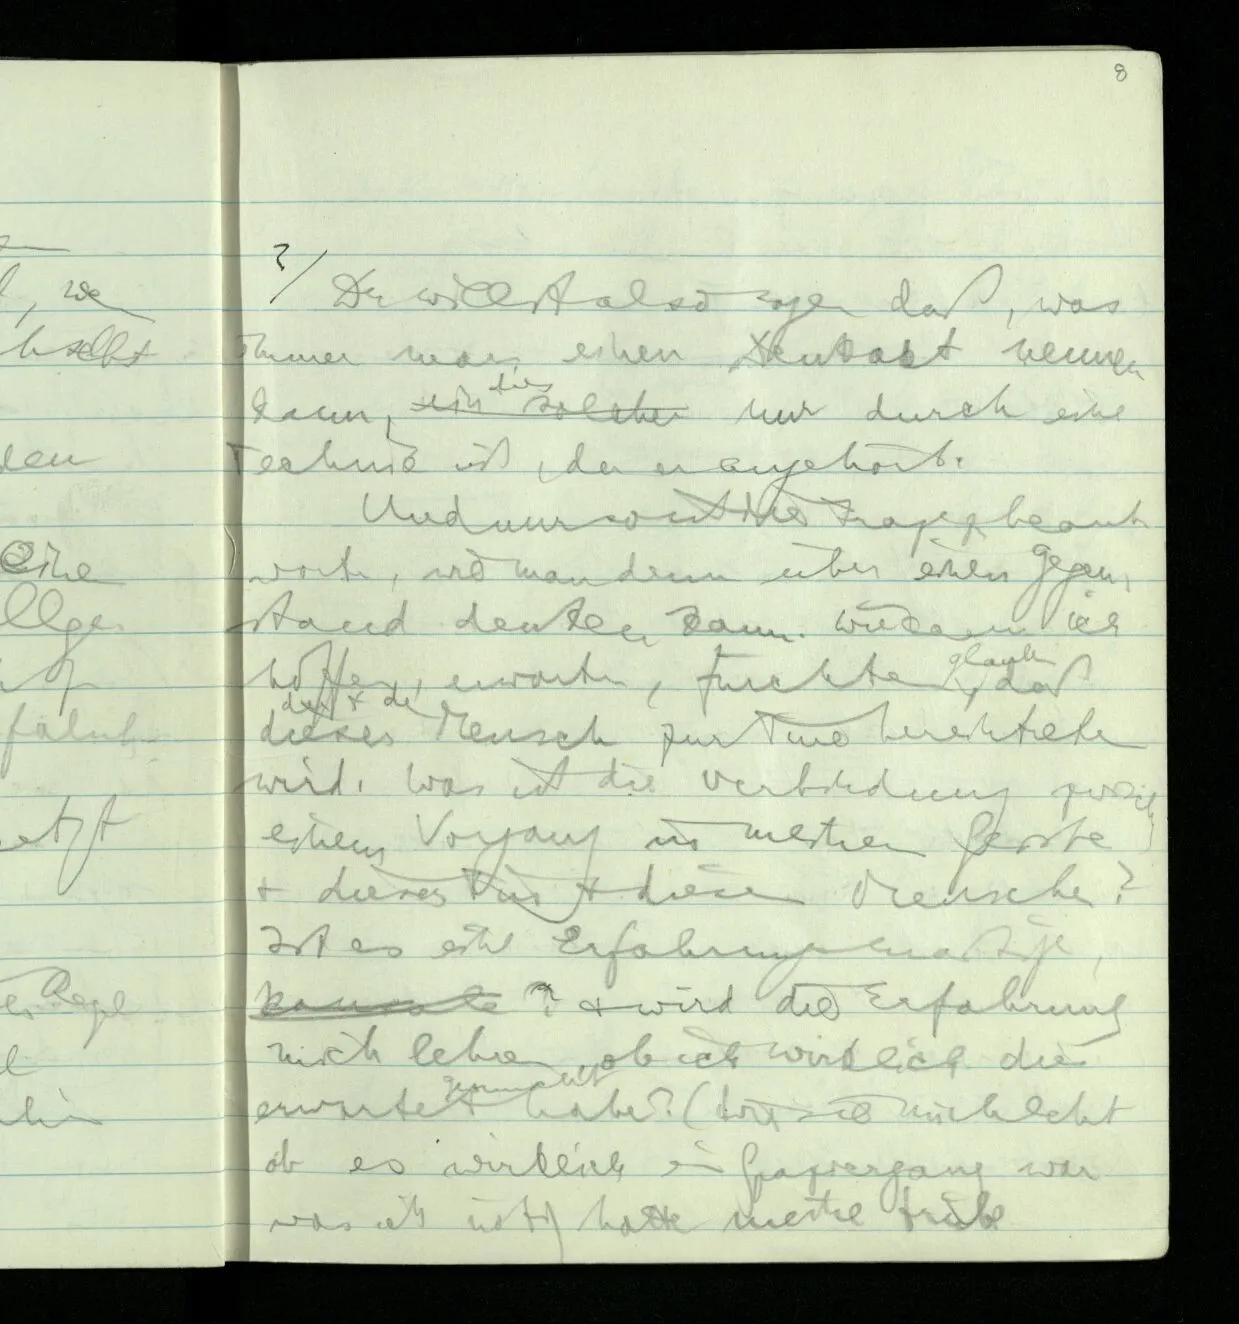 8
?/ Du willst also sagen daß, was
immer man einen Denkakt nennen
kann, ein solcher dies nur durch eine
Technik ist, der er angehört.
Und nun soll die Frage beant
worten, wie man denn über einen Gegen,
stand denken kann. Wie kann ich
hoffen, erwarten, fürchten, glauben daß
dieser der & der Mensch zur Türe hereintreten
wird. Was ist die Verbindung zwisch
einem Vorgang in meinem Geiste
& dieser Tür & diesem Menschen?
Ist es eine Erfahrungsmäßige,
? & wird die Erfahrung
mich lehren ob ich wirklich die
erwartet gemacht habe? ( wie sie mich lehrt
ob es wirklich ein Spaziergang war
was ich hatte meine
, we
den
eine
llge
etzt
Regel